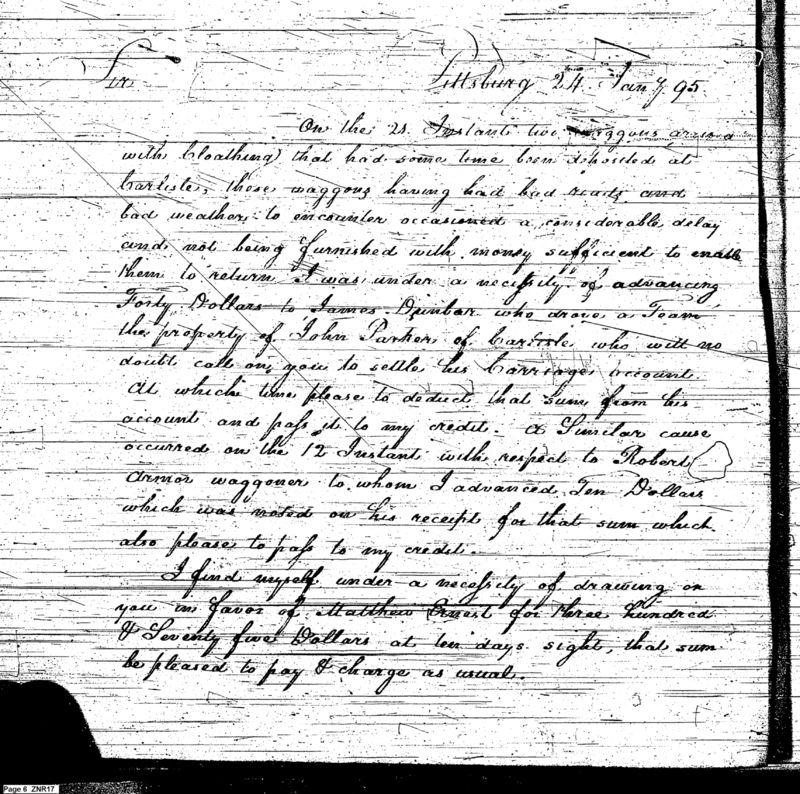 Sir Pittsburg 24. Jany. 95.
On the 21. Instant two waggons arrived
with Cloathing that had some time been deposited at
Carlisle, these waggons having had bad roads and
bad weather to encounter occasioned a considerable delay
and not being furnished with money sufficient to enable
them to return I was under a necessity of advancing
Forty Dollars to James Dunbar who drove a Team
the property of John Parker of Carlisle who will no
doubt call on you to settle his Carriage account.
At which time please to deduct that sum from his
account and pass it to my credit. A Similar cause
occurred on the 12 Instant with respect to Robert
Armor waggoner to whom I advanced Ten Dollars
which was noted on his receipt for that sum which
also please to pass to my credit.
I find myself under a necessity of drawing on
you in favor of Matthew Ernest for three hundred
& Seventy five Dollars at ten days sight, that sum
be pleased to pay & charge as usual.
Page 6 ZNR17